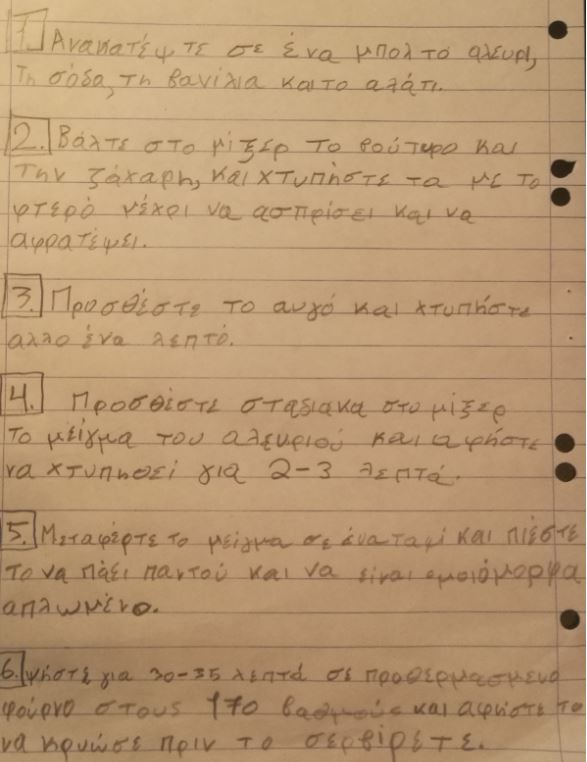 1. Ανακατέψτε σε ένα μπολ το αλευρι,
Τη σόδα, τη βανίλια και το αλάτι.
2. Βάλτε στο μίξερ το βούτυρο και
την ζάχαρη, και χτυπήστε τα με το
φτερό μέχρι να ασπρίσει και να
αφρατέψει.
3. Προσθέστε το αυγό και χτυπήστε
αλλο ένα λεπτό.
4. Προσθέστε σταδιακα στο μίξερ
το μείγμα του αλευριού και αφήστε
να χτυπηθεί για 2-3 λεπτά.
5. Μεταφέρτε το μείγμα σε ένα ταψί και πιέστε
το να πάει παντού και να είναι ομοιόμορφα
απλωμένο.
6. ψήστε για 30-35 λεπτά σε προθερμασμενο
φούρνο στους 170 βαθμούς και αφήστε το
να κρυώσε πριν το σερβίρετε.